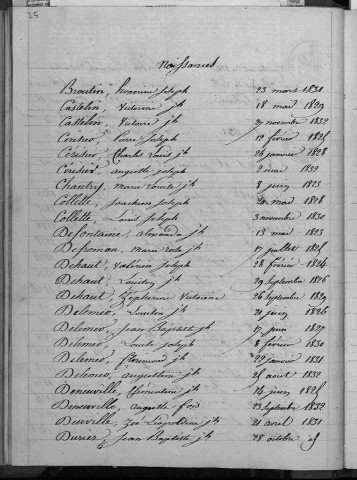 25
Naissances
Broutin, honorine joseph 23 mars 1831
Castelin, Victoire jh 18 mai 1829
Castelin, Victoire jh 29 novembre 1832
Cérisier, pierre joseph 12 février 1825
Cérisier, Charles Louis jh 26 janvier 1828
Cérisier, auguste joseph 2 mai 1832
Chantry, marie Louise jh 8 juin 1823
Collette, joachim joseph 20 mai 1828
Collette, Louis joseph 3 novembre 1830
Defontaine, alexandre jh 13 mai 1823
Defroman, marie rose jh 17 juillet 1825
Dehaut, Valérien joseph 28 février 1824
Dehaut, jh 29 septembre 1826
Dehaut, Zéphirine Victoire 26 septembre 1829
Delemer, jh 20 juin 1826
Delemer, jean Baptiste jh 17 juin 1827
Delemer, Louis joseph 8 février 1830
Delemer, florimond jh 22 janvier 1831
Delemer, augustin jh 25 août 1832
Deneuville, Clémentine jh 14 juin 1825
Deneuville, auguste 23 septembre 1832
Deuville, Zoé Léopoldine jh 21 avril 1831
Durier, jean Baptiste jh 28 octobre